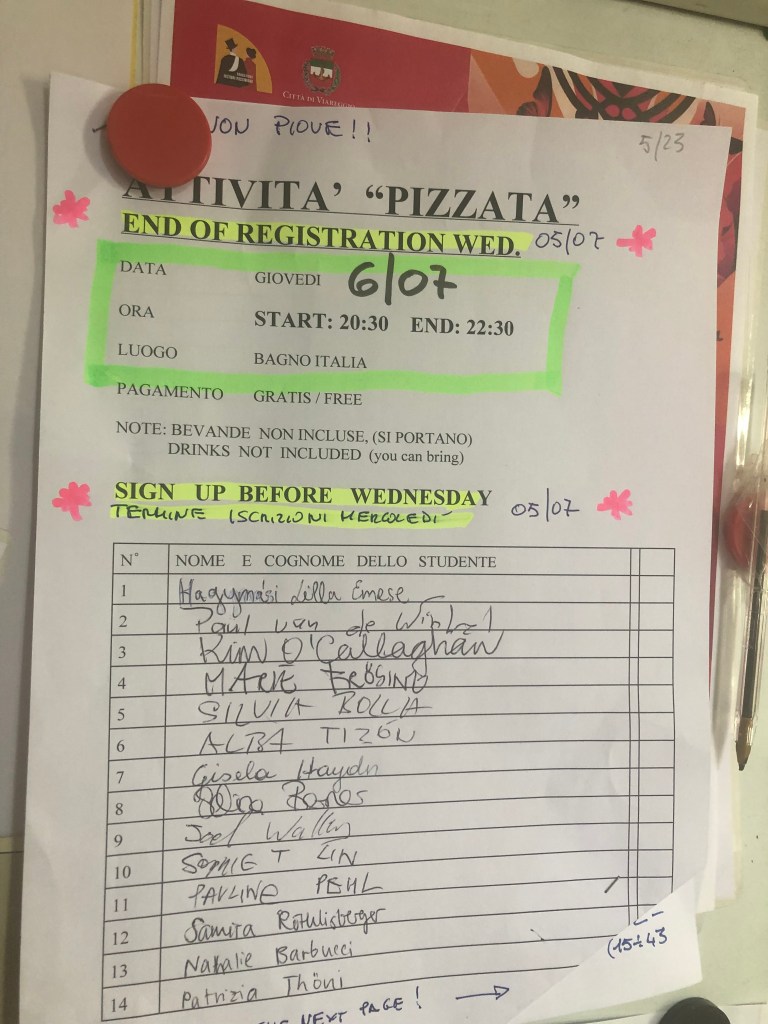 CITTÀ DI VIAREGGIO
NON PIOVE!!
5/23
ATTIVITA' “PIZZATA”
END OF REGISTRATION WED. 05/07
DATA GIOVEDI 6/07
ORA START: 20:30 END: 22:30
LUOGO BAGNO ITALIA
PAGAMENTO GRATIS / FREE
NOTE: BEVANDE NON INCLUSE, (SI PORTANO)
DRINKS NOT INCLUDED (you can bring)
SIGN UP BEFORE WEDNESDAY 05/07
TERMINE ISCRIZIONI MERCOLEDÌ
N° NOME E COGNOME DELLO STUDENTE
1 Hagymási Lilla Emese
2 Paul van de
3 Kim O'Callaghan
4 MARIE
5 SILVIA BOLLA
6 ALBA TIZÓN
7 Gisela Haydn
8
9 Joel
10 SOPHIE T LIN
11 PAULINE PEHL
12 Samira Röthlisberger
13 Nathalie Barbucci
14 Patrizia Thöni
(15÷43
NEXT PAGE!